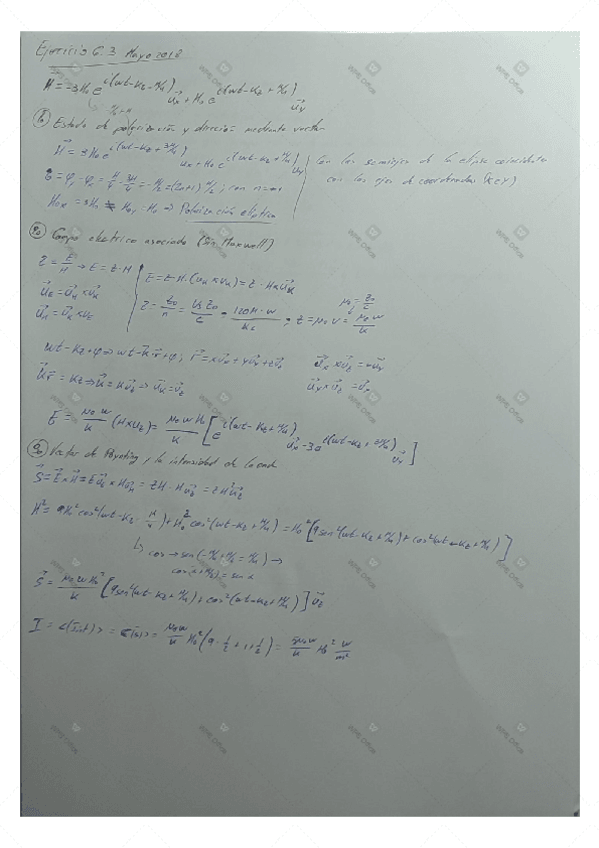 Ejercicio 6.3 Mayo 2018
H = -3H₀ e^{i(ωt-kz-π/4)} u_x + H₀ e^{i(ωt-kz+π/4)} u_y
1º Estado de polarización y dirección mediante
H = 3H₀ e^{i(ωt-kz+3π/4)} u_x + H₀ e^{i(ωt-kz+π/4)} u_y
Con los semiejes de la elipse coincidentes
con los ejes de coordenadas (x e y)
δ = φ_y - φ_x = π/4 - 3π/4 = -π/2 = (2n+1) π/2 ; con n =
H₀ₓ = 3H₀ ≠ H₀y = H₀ ⇒ Polarización elíptica
2º Campo electrico asociado (Sin Maxwell)
Z = E/H → E = Z·H
E = Z·H·(u_H × u_k) = Z·H × u_k
u_E = u_H × u_k
u_H = u_k × u_E
Z = Z₀/n =
Z = μ₀ v = μ₀ω/k
ωt - kz + φ ⇒ ωt - k·r + φ ; r = x u_x + y u_y + z u_z
u_x × u_z = -u_y
u_y × u_z = u_x
k·r = kz ⇒ k = k u_z ⇒ u_k = u_z
E = μ₀ω/k (H × u_z) = μ₀ω H₀/k [e^{i(ωt-kz+π/4)} u_x - 3e^{i(ωt-kz+3π/4)} u_y]
3º Vector de Poynting y la intensidad de la onda
S = E × H = E u_E × H u_H = ZH · H u_z = Z H² u_z
H² = 9H₀² cos²(ωt-kz-π/4) + H₀² cos²(ωt-kz+π/4) = H₀² [9sen²(ωt-kz+π/4) + cos²(ωt-kz+π/4)]
↳ cos → sen (-π/4 + π/2 = π/4) →
S = μ₀ω H₀²/k [9sen²(ωt-kz+π/4) + cos²(ωt-kz+π/4)] u_z
I = <|S(t)|> = μ₀ω/k H₀² (9·1/2 + 1·1/2) = 5μ₀ω/k H₀² W/m²